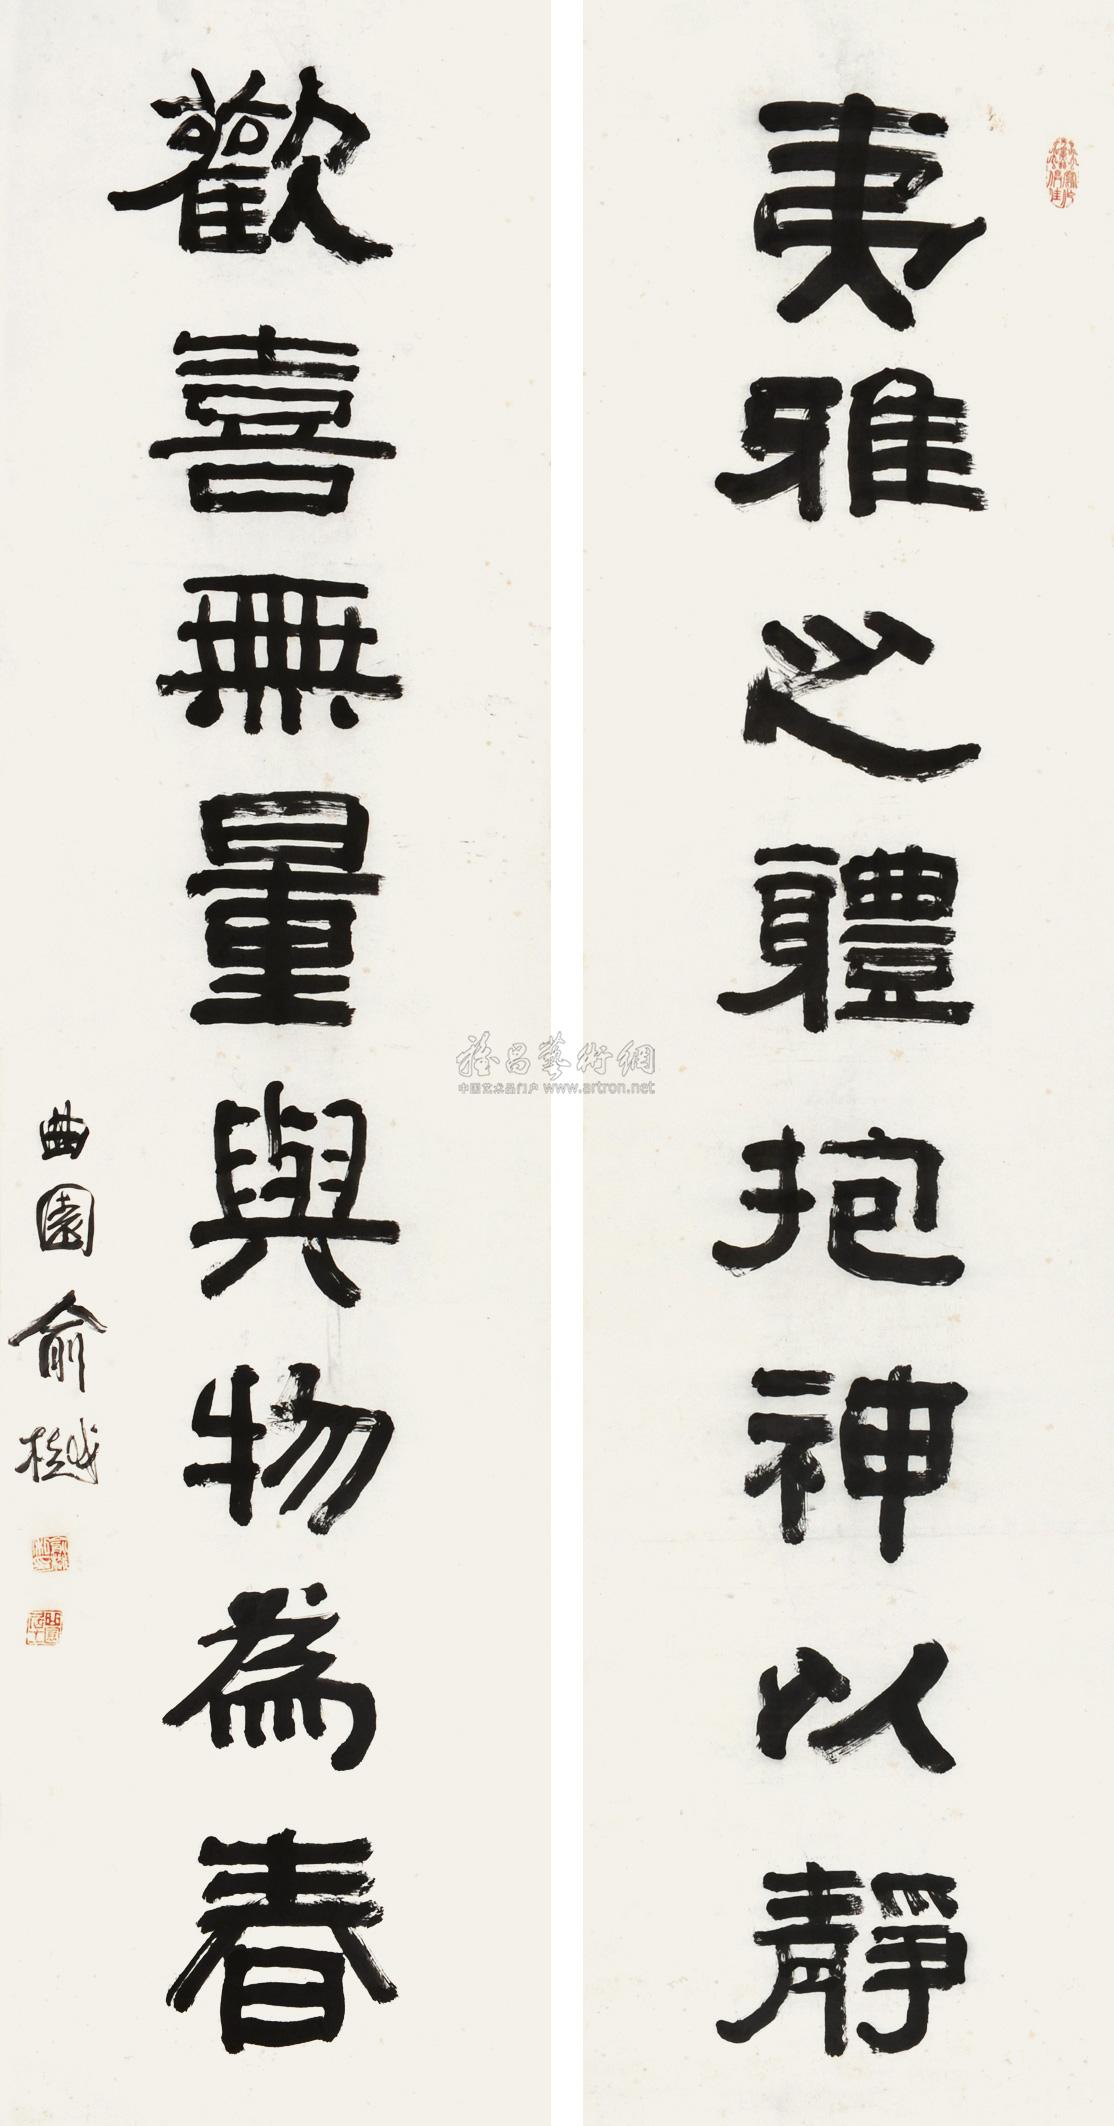 夷雅之體抱神以靜
歡喜無量與物為春
曲園俞樾
雅昌藝術網
中国艺术品门户 www.artron.net